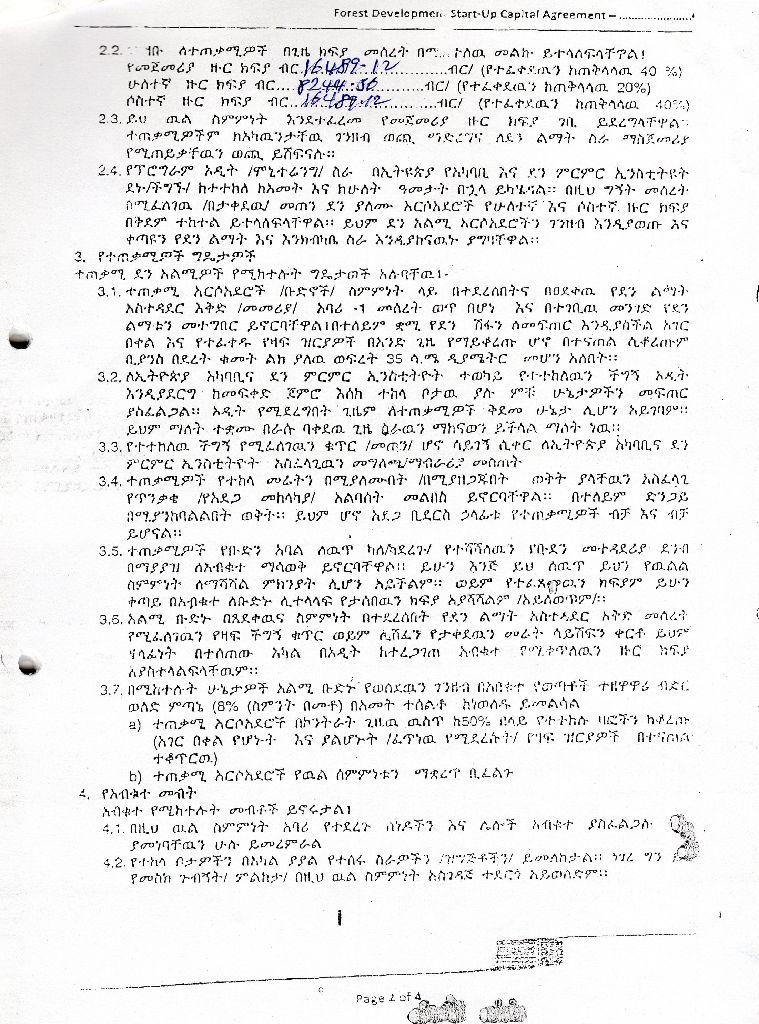 Forest Development Start-Up Capital Agreement – ........................
2.2. ለተጠቃሚዎች በጊዜ ክፍያ መሰረት መልኩ ይተላለፍላቸዋል፤
የመጀመሪያ ዙር ክፍያ ብር 16489.12 ብር/ (የተፈቀደዉን ከጠቅላላዉ 40 %)
ሁለተኛ ዙር ክፍያ ብር 8244.56 ብር/ (የተፈቀደዉን ከጠቅላላዉ 20%)
ሶስተኛ ዙር ክፍያ ብር 16489.12 ብር/ (የተፈቀደዉን ከጠቅላላዉ 40%)
2.3. ይህ ዉል ስምምነት እንደተፈረመ የመጀመሪያ ዙር ክፍያ ገቢ ይደረግላቸዋል፡፡
ተጠቃሚዎችም ከአካዉንታቸዉ ገንዘብ ወጪ ማድረግና ለደን ልማት ስራ ማስጀመሪያ
የሚጠይቃቸዉን ወጪ ይሸፍናሉ፡፡
2.4. የፕሮግራም ኦዲት /ሞኒተሪንግ/ ስራ በኢትዩጵያ የአካባቢ እና ደን ምርምር ኢንስቲትዩት
ደኑ/ችግኙ/ ከተተከለ ከአመት እና ከሁለት ዓመታት በኋላ ይካሄዳል፡፡ በዚህ ግኝት መሰረት
በሚፈለገዉ /በታቀደዉ/ መጠን ደን ያለሙ አርሶአደሮች የሁለተኛ እና ሶስተኛ ዙር ክፍያ
በቅደም ተከተል ይተላለፍላቸዋል፡፡ ይህም ደን አልሚ አርሶአደሮችን ገንዘብ እንዲያወጡ እና
ቀጣዩን የደን ልማት እና እንክብካቤ ስራ እንዲያከናዉኑ ያግዛቸዋል፡፡
3. የተጠቃሚዎች ግዴታዎች
ተጠቃሚ ደን አልሚዎች የሚከተሉት ግዴታወች አሉባቸዉ፤-
3.1. ተጠቃሚ አርሶአደሮች /ቡድኖች/ ስምምነት ላይ በተደረሰበትና በፀደቀዉ የደን ልማት
አስተዳደር እቅድ /መመሪያ/ አባሪ -1 መሰረት ወጥ በሆነ እና በተገቢዉ መንገድ የደን
ልማቱን መተግበር ይኖርባቸዋል፤በተለይም ቋሚ የደን ሽፋን ለመፍጠር እንዲያስችል አገር
በቀል እና የተፈቀዱ የዛፍ ዝርያዎች በአንድ ጊዜ የማይቆረጡ ሆኖ በተናጠል ሲቆረጡም
ቢያንስ በደረት ቁመት ልክ ያለዉ ወፍረት 35 ሳ.ሜ ዲያሜትር መሆን አለበት፡፡
3.2. ለኢትዮጵያ አካባቢና ደን ምርምር ኢንስቲትዮት ተወካይ የተተከለዉን ችግኝ ኦዲት
እንዲያደርግ ከመፍቀድ ጀምሮ እስከ ተከላ ቦታዉ ያሉ ምቹ ሁኔታዎችን መፍጠር
ያስፈልጋል፡፡ ኦዲት የሚደረግበት ጊዜም ለተጠቃሚዎች ቅድመ ሁኔታ ሊሆን አይገባም፡፡
ይህም ማለት ተቋሙ በራሱ ባቀደዉ ጊዜ ስራዉን ማከናወን ይችላል ማለት ነዉ፡፡
3.3. የተተከለዉ ችግኝ የሚፈለገዉን ቁጥር /መጠን/ ሆኖ ሳይገኝ ሲቀር ለኢትዮጵያ አካባቢና ደን
ምርምር ኢንስቲትዮት አስፈላጊዉን መግለጫ/ማብራሪያ መስጠት
3.4. ተጠቃሚዎች የተከላ መሬትን በሚያለሙበት /በሚያዘጋጁበት ወቅት ያላቸዉን አስፈላጊ
የጥንቃቄ /የአደጋ መከላከያ/ አልባሳት መልበስ ይኖርባቸዋል፡፡ በተለይም ድንጋይ
በሚያንከባልልበት ወቅት፡፡ ይህም ሆኖ አደጋ ቢደርስ ኃላፊቱ የተጠቃሚዎች ብቻ እና ብቻ
ይሆናል፡፡
3.5. ተጠቃሚዎች የቡድን አባል ለዉጥ ካለ/ካደረጉ/ የተሻሻለዉን የቡድን መተዳደሪያ ደንብ
በማያያዝ ለአብቁተ ማሳወቅ ይኖርባቸዋል፡፡ ይሁን እንጅ ይህ ለዉጥ ይህን የዉልል
ስምምነት ለማሻሻል ምክንያት ሊሆን አይችልም፡፡ ወይም ክፍያም ይሁን
ቀጣይ በአብቁተ ለቡድኑ ሊተላላፍ የታሰበዉን ክፍያ አያሻሻልም /አይለወጥም/፡፡
3.6. አልሚ ቡድኑ በጸደቀዉና ስምምነት በተደረሰበት የደን ልማት አስተዳደር እቅድ መሰረት
የሚፈለገዉን የዛፍ ችግኝ ቁጥር ወይም ሊሸፈን የታቀደዉን መሬት ሳይሸፍን ቀርቶ ይህም
ሃላፊነት በተሰጠው አካል በኦዲት ከተረጋገጠ አብቁተ የሚቀጥለዉን ዙር ክፍያ
አያስተላልፍላቸዉም፡፡
3.7. በሚከተሉት ሁኔታዎች አልሚ ቡድኑ የወሰደዉን ገንዘብ በአብቁተ የወጣቶች ተዘዋዋሪ ብድር
ወለድ ምጣኔ (8% (ስምንት በመቶ) በአመት ተሰልቶ ከነወለዱ ይመልሳል
a) ተጠቃሚ አርሶአደሮች በኮንትራት ጊዜዉ ዉስጥ ከ50% በላይ የተተከሉ ዛፎችን ከቆረጡ
(አገር በቀል የሆኑት እና ያልሆኑት /ፈጥነዉ የሚደረሱት/ የዛፍ ዝርያዎች በተናጠል
ተቆጥርዉ)
b) ተጠቃሚ አርሶአደሮች የዉል ስምምነቱን ማቋረጥ ቢፈልጉ
4. የአብቁተ መብት
አብቁተ የሚከተሉት መብቶች ይኖሩታል፤
4.1. በዚህ ዉል ስምምነት አባሪ የተደረጉ ሰነዶችን እና ሌሎች አብቁተ ያስፈልጋሉ
ያመነባቸዉን ሁሉ ይመረምራል
4.2. የተከላ ቦታዎችን በአካል ያያል የተሰሩ ስራዎችን /ዝግጅቶችን/ ይመለከታል፡፡ ነገረ ግን
የመስክ ጉብኝት/ ምልከታ/ በዚህ ዉል ስምምነት አስገዳጅ ተደርጎ አይወሰድም፡፡
Page 2 of 4